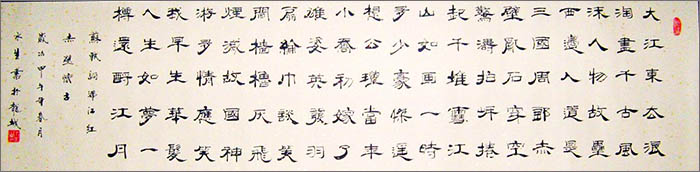 大江東去浪
淘盡千古風
流人物故壘
西邊人道是
三國周郎赤
壁亂石穿空
驚濤拍岸捲
起千堆雪江
山如画一時
多少豪傑遥
想公瑾當年
小喬初嫁了
雄姿英發羽
扇綸巾談笑
間檣櫓灰飛
煙滅故國神
游多情應笑
我早生華髮
人生如夢一
樽還酹江月
蘇軾詞滿江紅
赤壁懷古
歲次甲午年春月
永生書於龍城